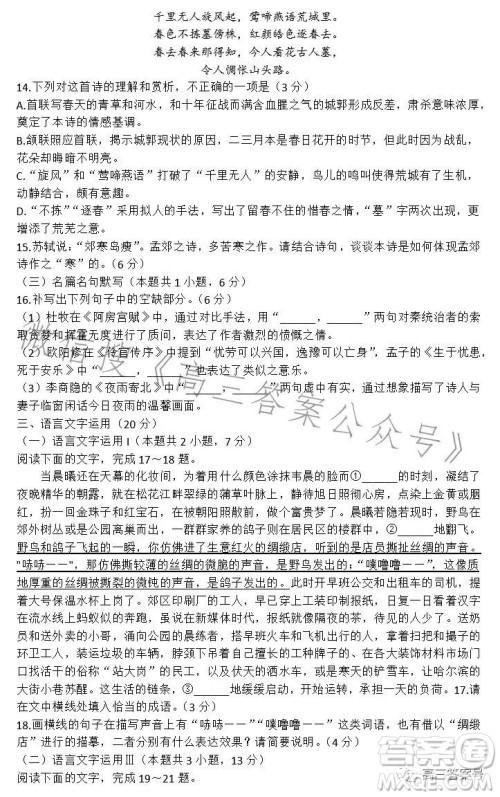 千里无人旋风起，莺啼燕语荒城里。
春色不拣墓傍株，红颜皓色逐春去。
春去春来那得知，今人看花古人墓，
令人惆怅山头路。
14.下列对这首诗的理解和赏析，不正确的一项是（3 分）
A.首联写春天的青草和河水，和十年征战的满含血腥之气的城郭形成反差，肃杀意味浓厚，
奠定了本诗的情感基调。
B.颔联照应首联，描写城郭现状的荒凉，二三月本是春日花开的时节，但因为战乱，
花朵却晦暗不明亮。
C.“旋风”和“莺啼燕语”打破了“千里无人”的安静，鸟儿的鸣叫使得荒城有了生机，
动静结合，颇有意趣。
D.“不拣”“逐春”采用拟人的手法，写出了留春不住的惜春之情，“墓”字更
增添了荒芜之意。
15.苏轼说：“郊寒岛瘦”。孟郊之诗，多苦寒之作。请结合诗句，谈谈本诗是如何体现孟郊
诗作之“寒”的。（6 分）
（三）名篇名句默写（本题共 1 小题，6 分）
16.补写出下列句子中的空缺部分。（6 分）
（1）杜牧在《阿房宫赋》中，通过对比手法，用“______，______”两句对秦统治者的索
取贪婪和挥霍无度进行了质问，表达了作者激烈的愤慨之情。
（2）欧阳修在《伶官传序》中提到“忧劳可以兴国，逸豫可以亡身”，孟子的《生于忧患，
死于安乐》中“______，______”的表述与此类似。
（3）李商隐的《夜雨寄北》中“______，______”两句虚中有实，通过想象描写了诗人与
妻子临窗闲话今日夜雨的温馨画面。
三、语言文字运用（20 分）
（一）语言文字运用Ⅰ（本题共 2 小题，7 分）
阅读下面的文字，完成 17～18 题。
当晨曦还在天幕的化妆间，为自己用什么颜色涂抹韦晨的脸而①______的时刻，凝结了
夜晚精华的朝露，就在松花江畔翠绿的蒲草叶脉上，静待旭日照彻心房，点染上金黄或胭
红，扮一回金珠子和红宝石，在被朝阳照散前，做个富贵梦了。当晨曦若隐若现时，野鸟在
郊外大小公园离巢而出，一群群家养的鸽子则在居民区的楼群前，②______地翻飞。
野鸟和鸽子飞起的一瞬，你仿佛进了生意红火的绸缎店，听到的是店员撕扯丝绸的声音。
"哧哧－－"，那仿佛撕较薄的丝绸的微脆的声音，是野鸟发出的；“噗噜噜－－”，这像质
地厚重的丝绸被撕裂的微钝的声音，是鸽子发出的。此时开早班公交和出租车的司机，提
着大号保温水杯上岗了。郊区印刷厂、乳品厂的工人，早早换上工装印制报纸，日夜不息流
水线上蚂蚁似的货品，在各大商市开板前，将它们运达。环卫工人也无例外地带着扫帚锹铲
和送水及盒饭的小哥，搭早班火车与菜市场里人一样，拿着收着和捆扎行李奔向
环卫车辆，脖颈下吊着毛巾，扛着擅长的工种牌子，在寒风中等待雇主挑选，为生
活打拼的俗称“站大岗”的民工，以及寒天的铲雪车，让哈尔滨的
大街小巷苏醒。这座城的机体，③______地缓缓启动，开始了又一天的运行。17.请
在文中横线处填入恰当的成语。（3 分）
18.画横线的句子在描写声音上用“哧哧－－”“噗噜噜－－”这类词语，也有借以“绸缎
店”进行的描摹，二者分别有什么表达效果？请简要说明。（4 分）
（二）语言文字运用Ⅲ（本题共 3 小题，13 分）
阅读下面的文字，完成 19～21 题。
微信搜《高三答案公众号》
答案圈
高三答案号